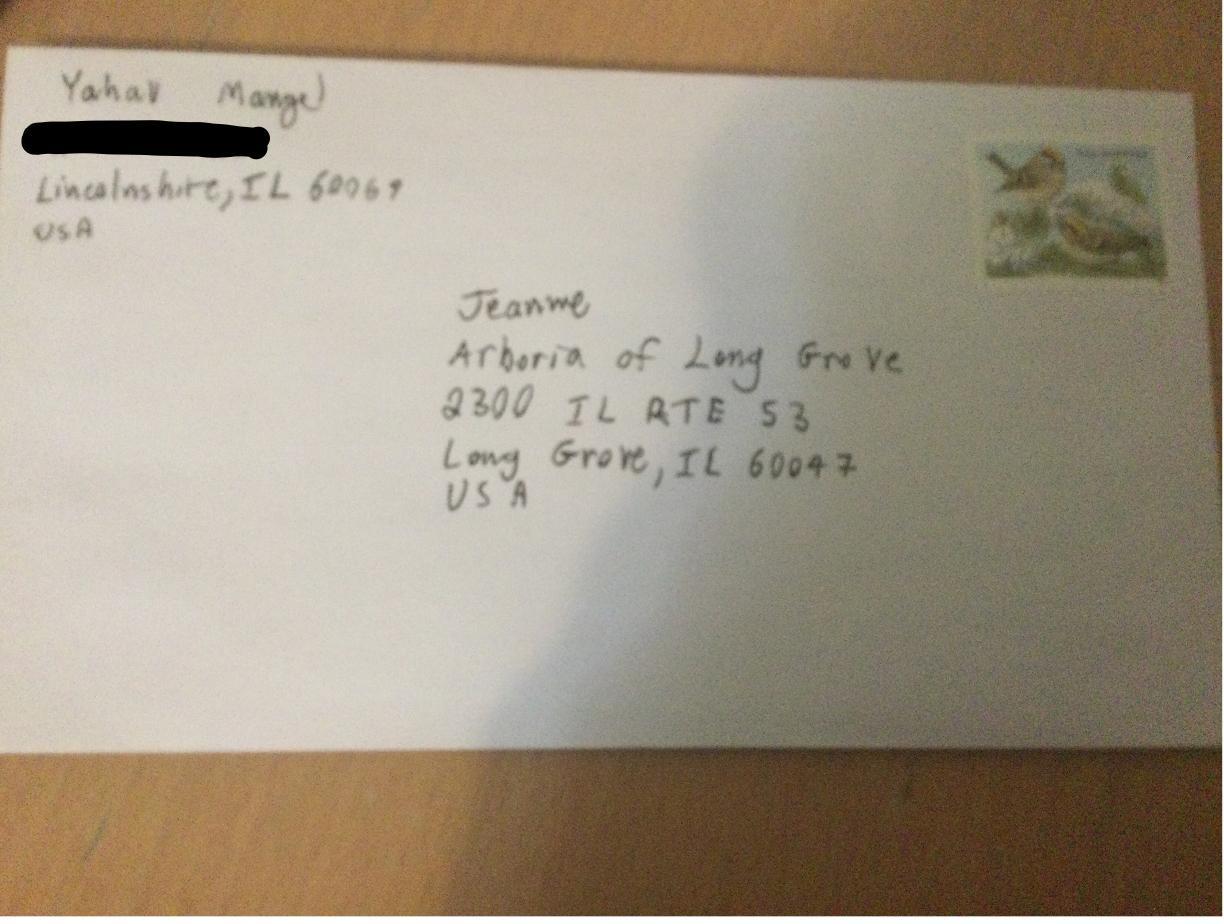 Yahav Mangel
Lincolnshire, IL 60069
USA
Jeanne
Arboria of Long Grove
2300 IL RTE 53
Long Grove, IL 60047
USA